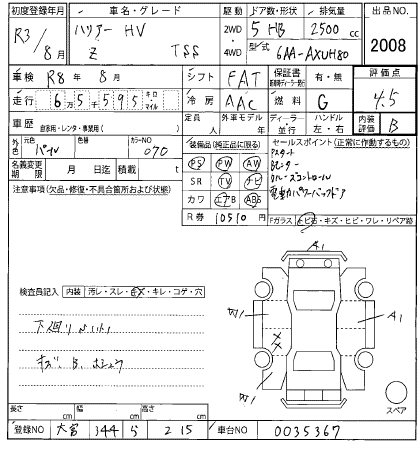 初度登録年月 車名・グレード 駆動 ドア数・形状 排気量 出品NO.
R3/8月 ハリアー HV 2WD 4WD 5 HB 2500 cc
Z TSS 型式 6AA-AXUH80 2008
車検 R8年 8月 シフト FAT 保証書 有・無 評価点
走行 65595 キロ・マイル 冷房 AAC 燃料 G 4.5
車歴 自家用・レンタ・事業用( ) 定員 外車モデル ディーラー 並行 ハンドル 左・右 内装評価 B
外色 元色 パール 色替 カラーNO 070
装備品(純正品に限る) セールスポイント(正常に作動するもの)
名義変更期限 月 日迄 積載 t
PS PW AW
SR TV ナビ
カワ エアB ABS
クルーズコントロール
電動パワーバックドア
注意事項(欠品・修復・不具合箇所および状態)
R券 10510 Fガラス トビ石・キズ・ヒビ・ワレ・リペア跡
A1
検査員記入 内装 汚レ・スレ・キズ・キレ・コゲ・穴
A1
下廻り
キズ、B、
スペア
長さ cm 幅 cm 高さ cm
登録NO 大宮 344 ら 215 車台NO 0035367